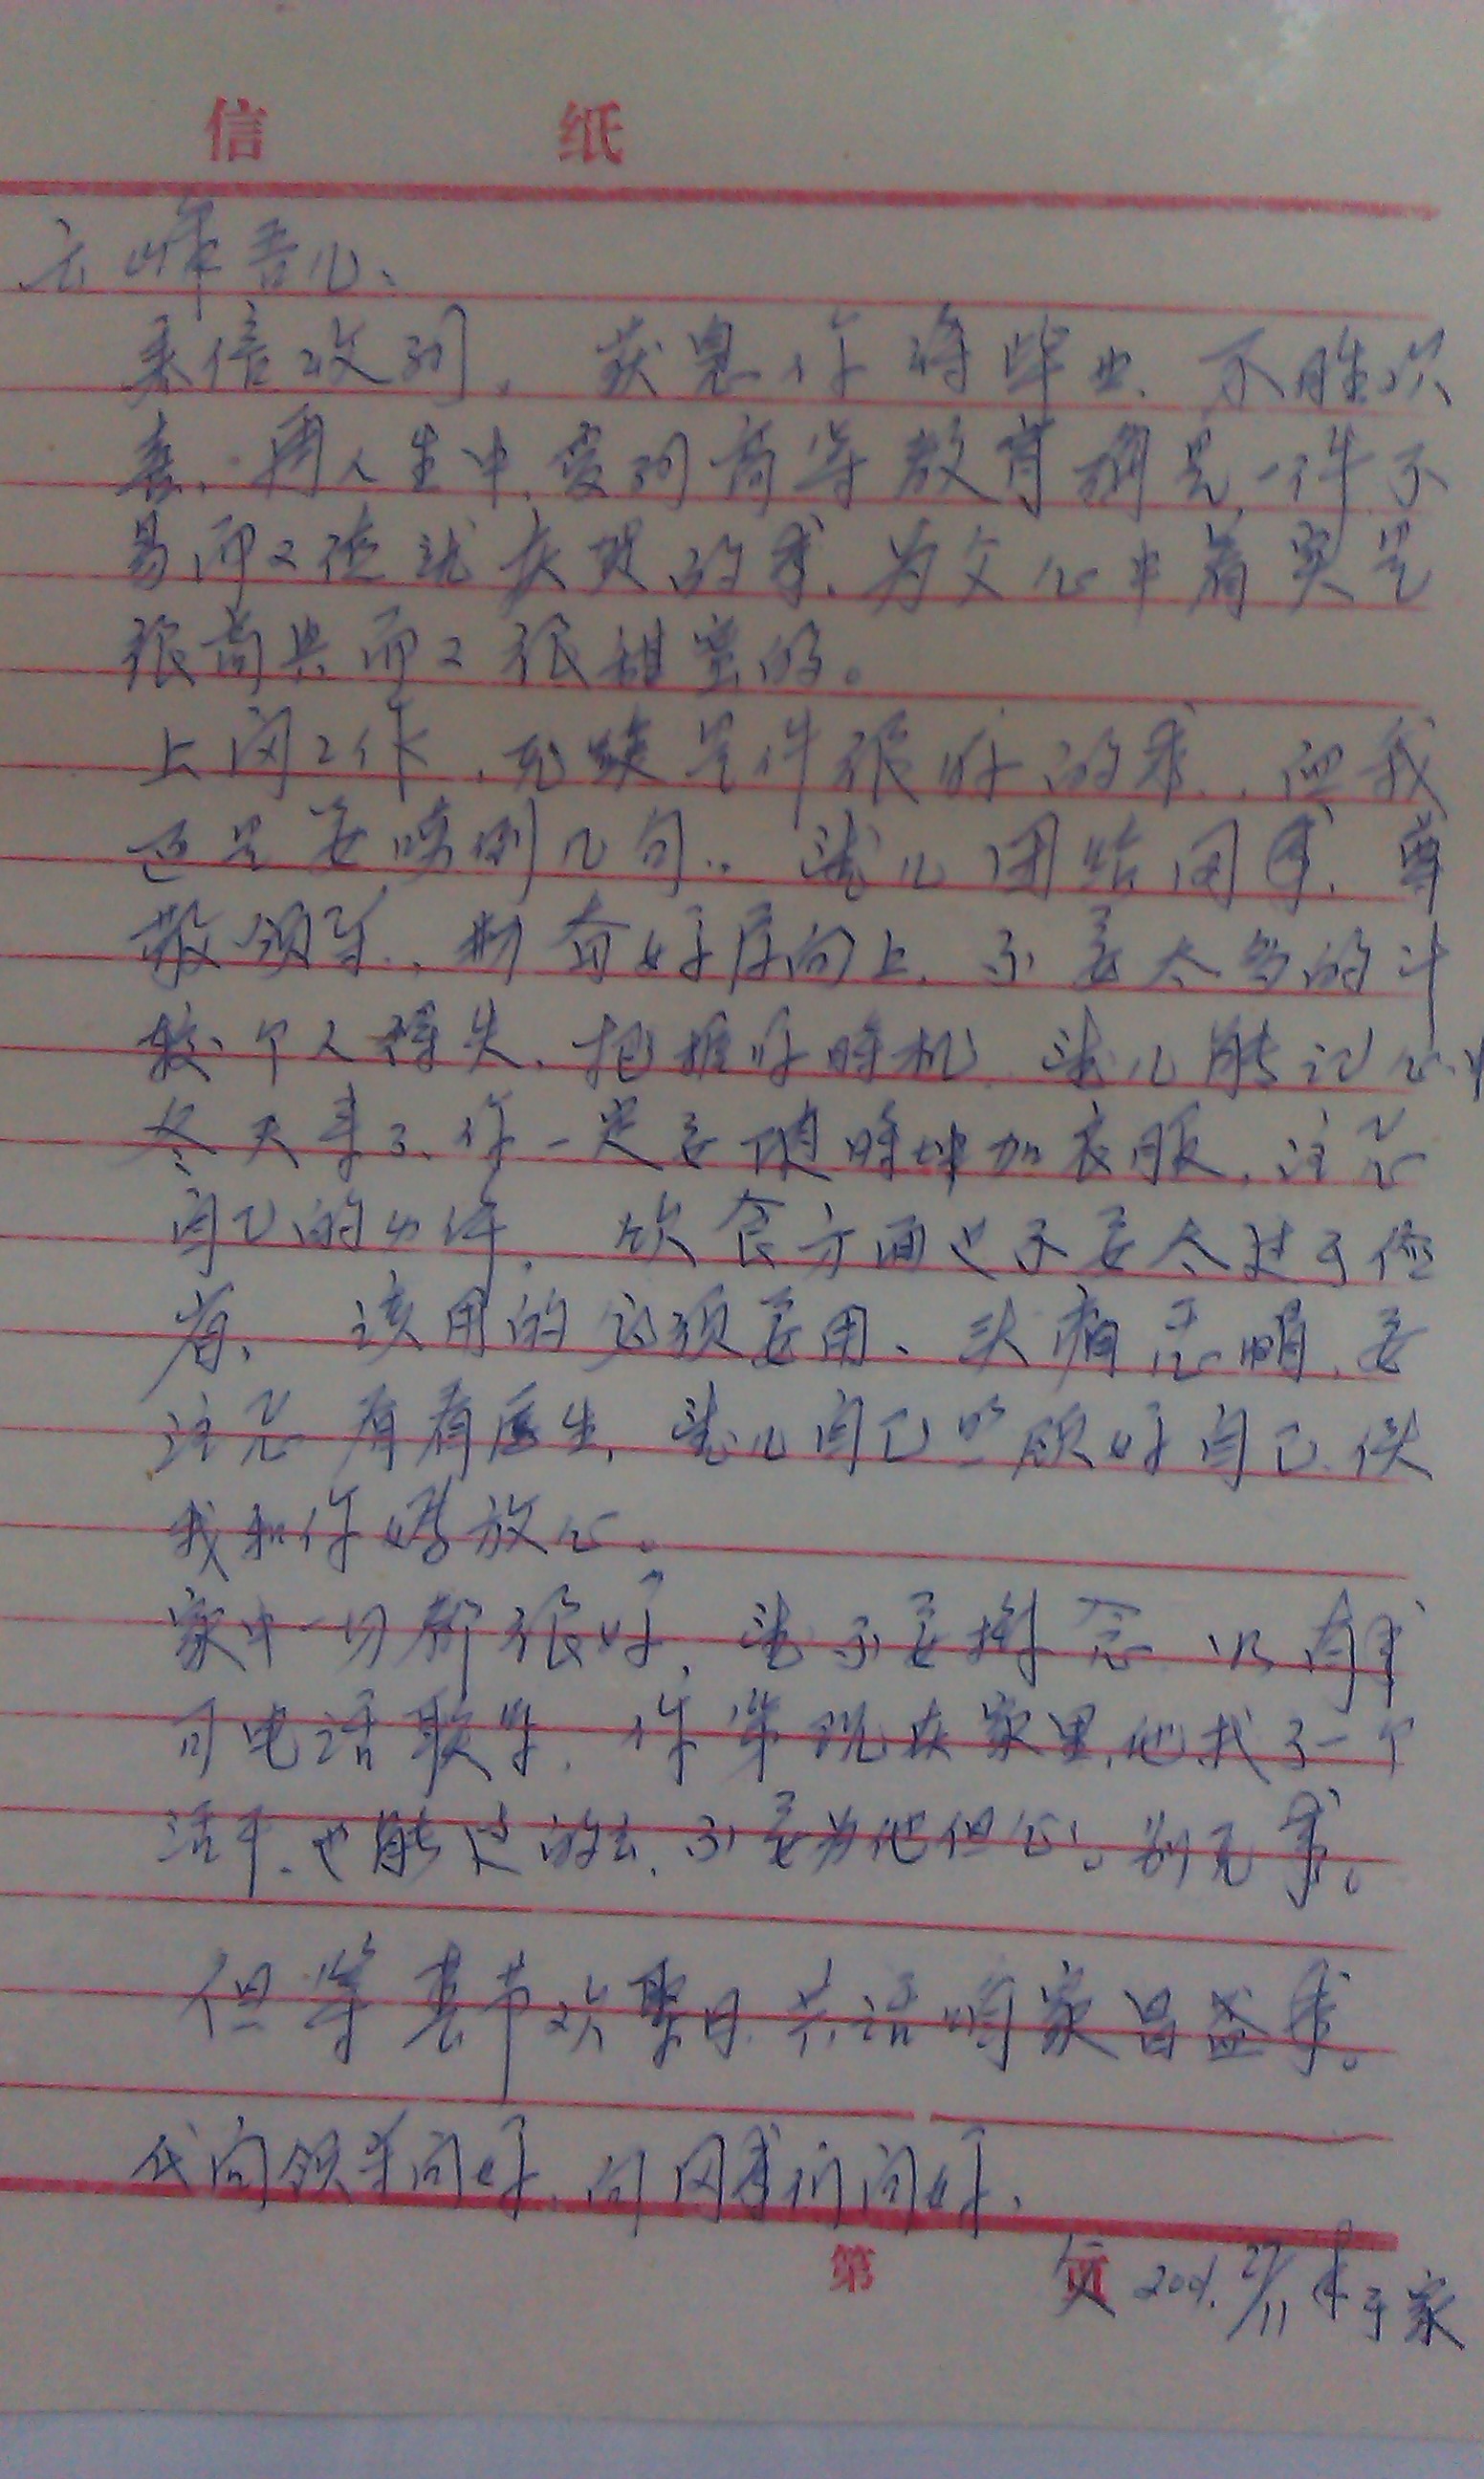 信 纸
云峰吾儿、
来信收到。获息你将毕业、不胜欢
喜，再人生中，受到高等教育确是一件不
易而又值 庆贺的事、为父心中着实是
很高兴而又很甜蜜的。
上岗工作，无疑是件很好的事，但我
还是要唠叨几句，望儿团结同事、尊
敬领导、勤奋好 向上、不要太多的计
较个人得失、把握好时机，望儿能记心中
冬天来了、你一定要随时增加衣服，注意
自己的身体，饮食方面也不要太过于俭
省、该用的必须要用、头痛 要
注意看看医生，望儿自己照顾好自己、供
我和你妈放心。
家中一切都很好，望不要挂念 以 有事
可电话联系，你弟现在家里，他找了一个
活干、也能过的去、不要为他但心。别无事。
但等春节欢聚日、共话咱家昌盛事。
代向领导问好、向同事们问好、
第 页 200 27/11 于家